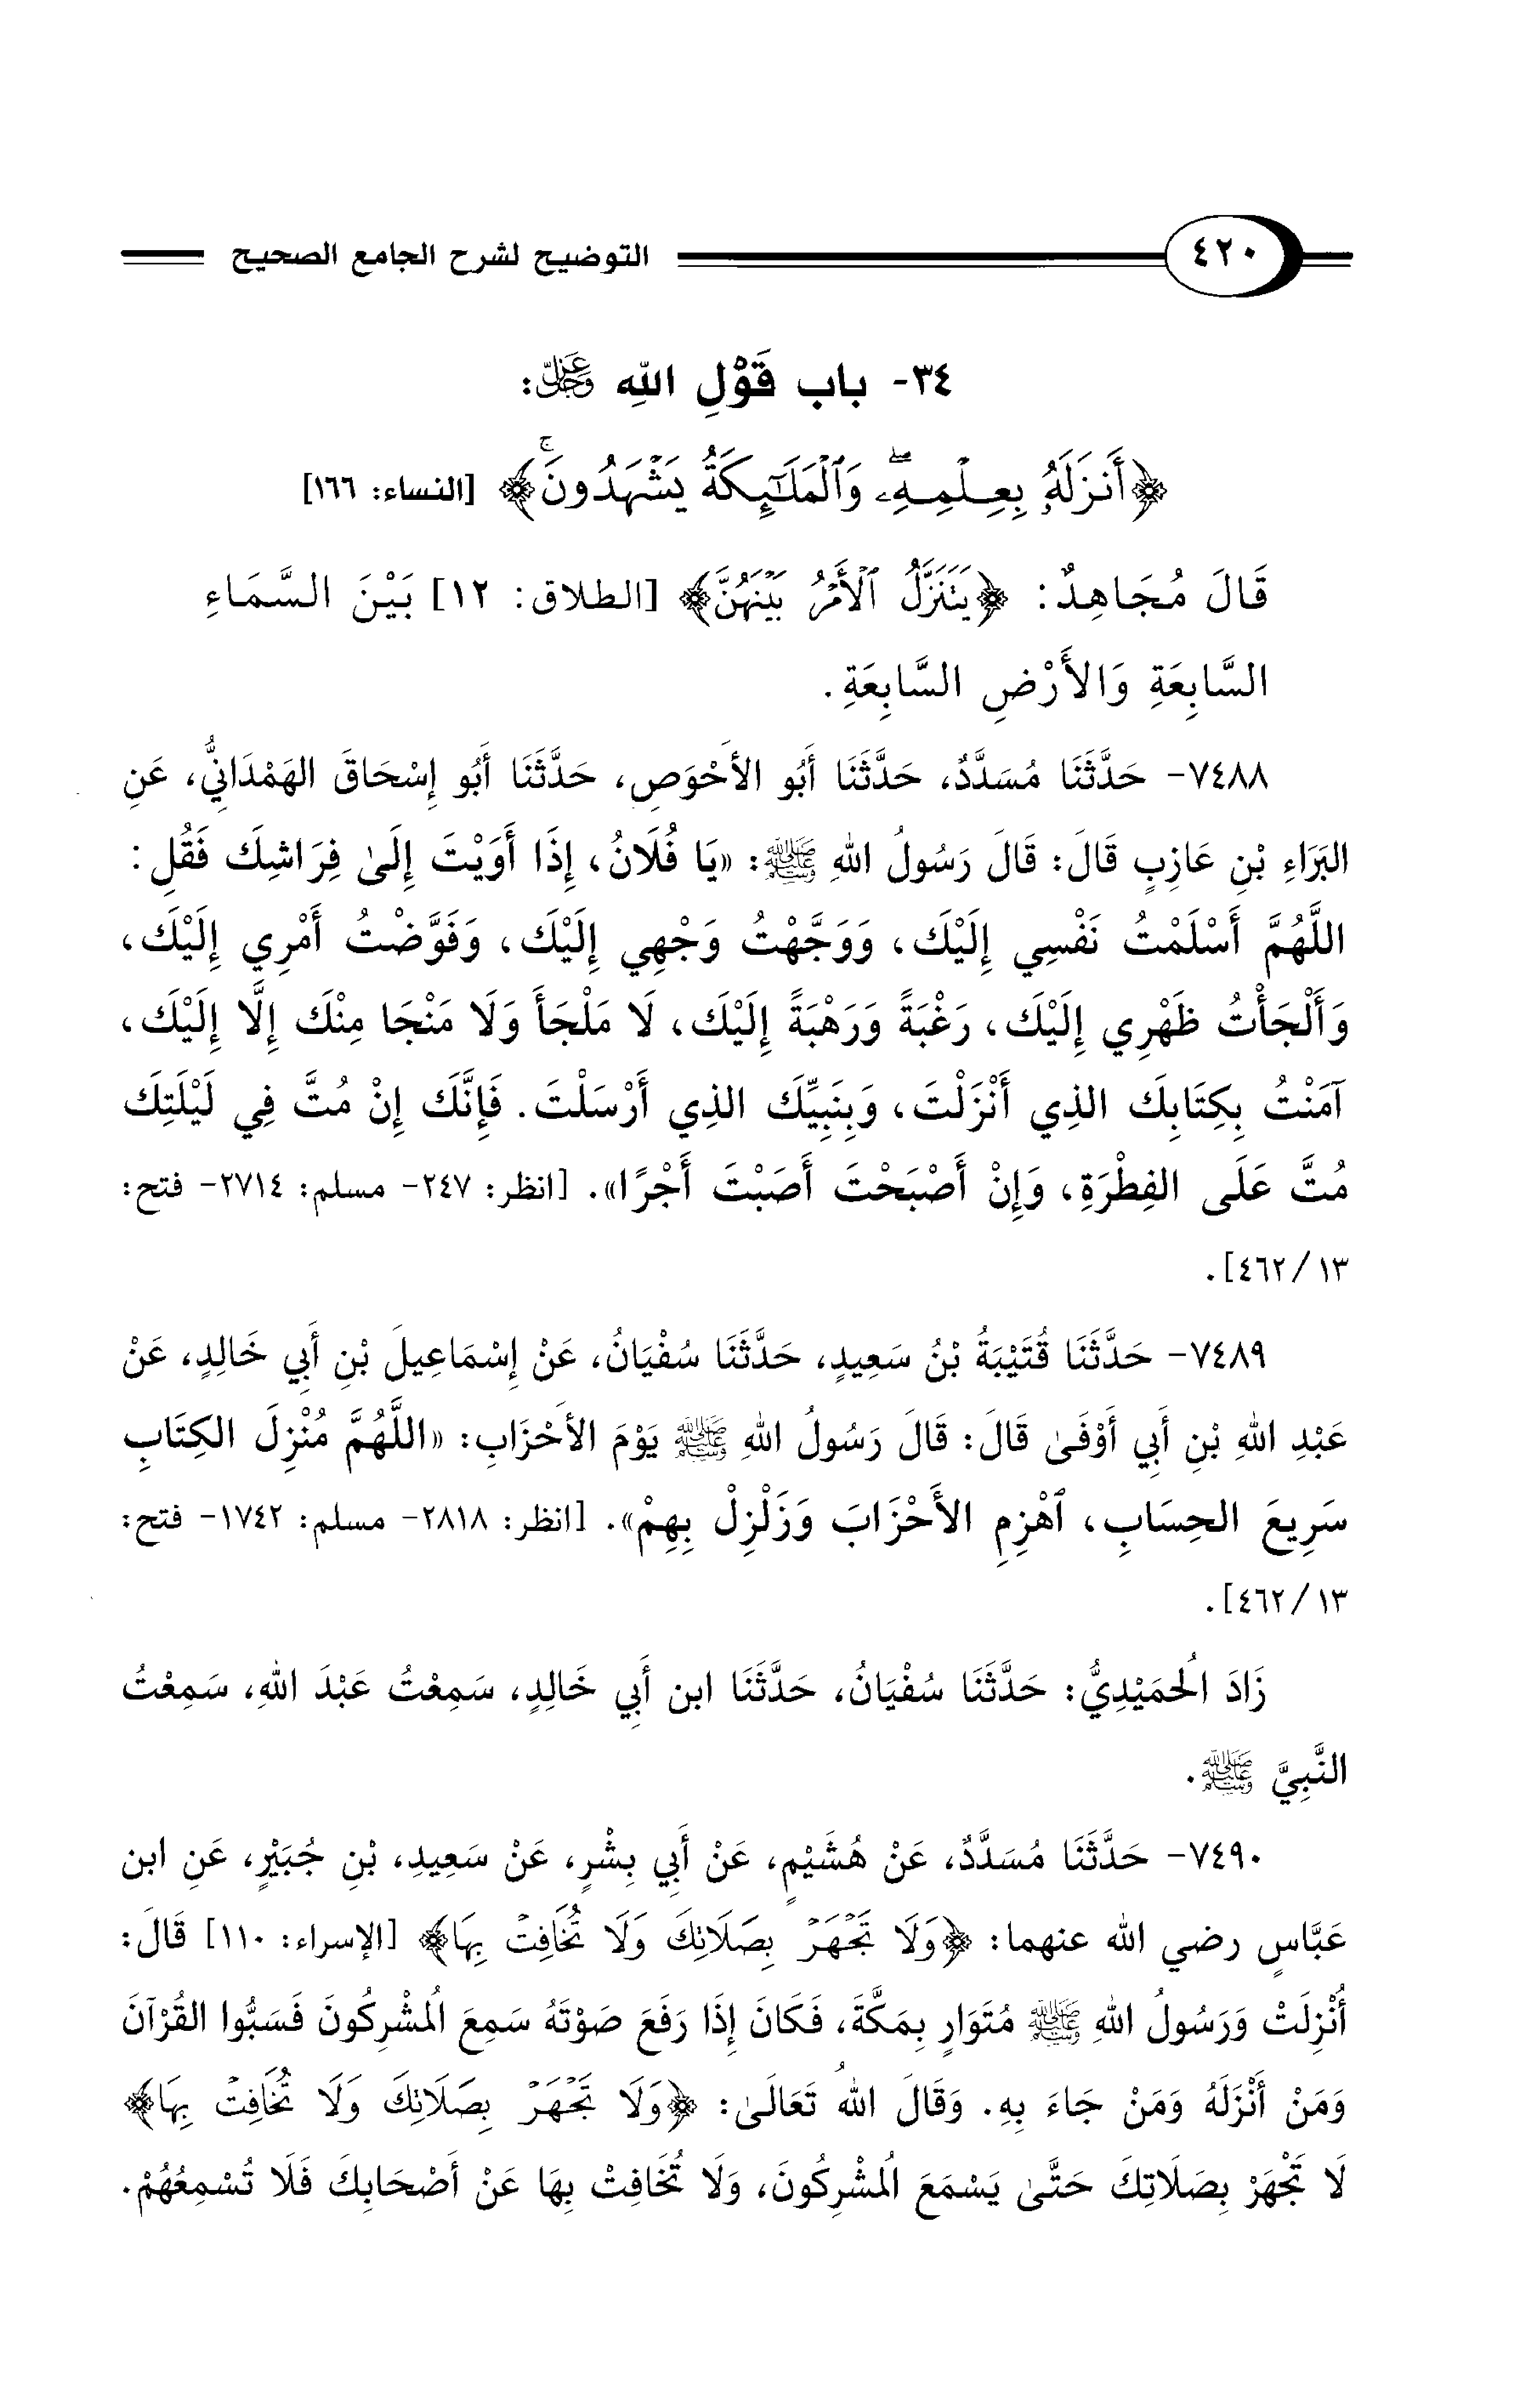 ٤٢٠ التوضيح لشرح الجامع الصحيح
٣٤- باب قَوْلِ اللهِ عَزَّ وَجَلَّ:
﴿أَنزَلَهُۥ بِعِلْمِهِۦۖ وَٱلْمَلَٰٓئِكَةُ يَشْهَدُونَۚ﴾ [النساء: ١٦٦]
قَالَ مُجَاهِدٌ: ﴿يَتَنَزَّلُ ٱلْأَمْرُ بَيْنَهُنَّ﴾ [الطلاق: ١٢] بَيْنَ السَّمَاءِ
السَّابِعَةِ وَالأَرْضِ السَّابِعَةِ.
٧٤٨٨- حَدَّثَنَا مُسَدَّدٌ، حَدَّثَنَا أَبُو الأَحْوَصِ، حَدَّثَنَا أَبُو إِسْحَاقَ الهَمْدَانِيُّ، عَنِ
البَرَاءِ بْنِ عَازِبٍ قَالَ: قَالَ رَسُولُ اللهِ ﷺ: «يَا فُلَانُ، إِذَا أَوَيْتَ إِلَىٰ فِرَاشِكَ فَقُلِ:
اللَّهُمَّ أَسْلَمْتُ نَفْسِي إِلَيْكَ، وَوَجَّهْتُ وَجْهِي إِلَيْكَ، وَفَوَّضْتُ أَمْرِي إِلَيْكَ،
وَأَلْجَأْتُ ظَهْرِي إِلَيْكَ، رَغْبَةً وَرَهْبَةً إِلَيْكَ، لَا مَلْجَأَ وَلَا مَنْجَا مِنْكَ إِلَّا إِلَيْكَ،
آمَنْتُ بِكِتَابِكَ الذِي أَنْزَلْتَ، وَبِنَبِيِّكَ الذِي أَرْسَلْتَ. فَإِنَّكَ إِنْ مُتَّ فِي لَيْلَتِكَ
مُتَّ عَلَى الفِطْرَةِ، وَإِنْ أَصْبَحْتَ أَصَبْتَ أَجْرًا». [انظر: ٢٤٧- مسلم: ٢٧١٤- فتح:
١٣/ ٤٦٢].
٧٤٨٩- حَدَّثَنَا قُتَيْبَةُ بْنُ سَعِيدٍ، حَدَّثَنَا سُفْيَانُ، عَنْ إِسْمَاعِيلَ بْنِ أَبِي خَالِدٍ، عَنْ
عَبْدِ اللهِ بْنِ أَبِي أَوْفَىٰ قَالَ: قَالَ رَسُولُ اللهِ ﷺ يَوْمَ الأَحْزَابِ: «اللَّهُمَّ مُنْزِلَ الكِتَابِ
سَرِيعَ الحِسَابِ، ٱهْزِمِ الأَحْزَابَ وَزَلْزِلْ بِهِمْ». [انظر: ٢٨١٨- مسلم: ١٧٤٢- فتح:
١٣/ ٤٦٢].
زَادَ الحُمَيْدِيُّ: حَدَّثَنَا سُفْيَانُ، حَدَّثَنَا ابن أَبِي خَالِدٍ، سَمِعْتُ عَبْدَ اللهِ، سَمِعْتُ
النَّبِيَّ ﷺ.
٧٤٩٠- حَدَّثَنَا مُسَدَّدٌ، عَنْ هُشَيْمٍ، عَنْ أَبِي بِشْرٍ، عَنْ سَعِيدِ، بْنِ جُبَيْرٍ، عَنِ ابن
عَبَّاسٍ رضي الله عنهما: ﴿وَلَا تَجْهَرْ بِصَلَاتِكَ وَلَا تُخَافِتْ بِهَا﴾ [الإسراء: ١١٠] قَالَ:
أُنْزِلَتْ وَرَسُولُ اللهِ ﷺ مُتَوَارٍ بِمَكَّةَ، فَكَانَ إِذَا رَفَعَ صَوْتَهُ سَمِعَ المُشْرِكُونَ فَسَبُّوا القُرْآنَ
وَمَنْ أَنْزَلَهُ وَمَنْ جَاءَ بِهِ. وَقَالَ اللهُ تَعَالَىٰ: ﴿وَلَا تَجْهَرْ بِصَلَاتِكَ وَلَا تُخَافِتْ بِهَا﴾
لَا تَجْهَرْ بِصَلَاتِكَ حَتَّىٰ يَسْمَعَ المُشْرِكُونَ، وَلَا تُخَافِتْ بِهَا عَنْ أَصْحَابِكَ فَلَا تُسْمِعُهُمْ.